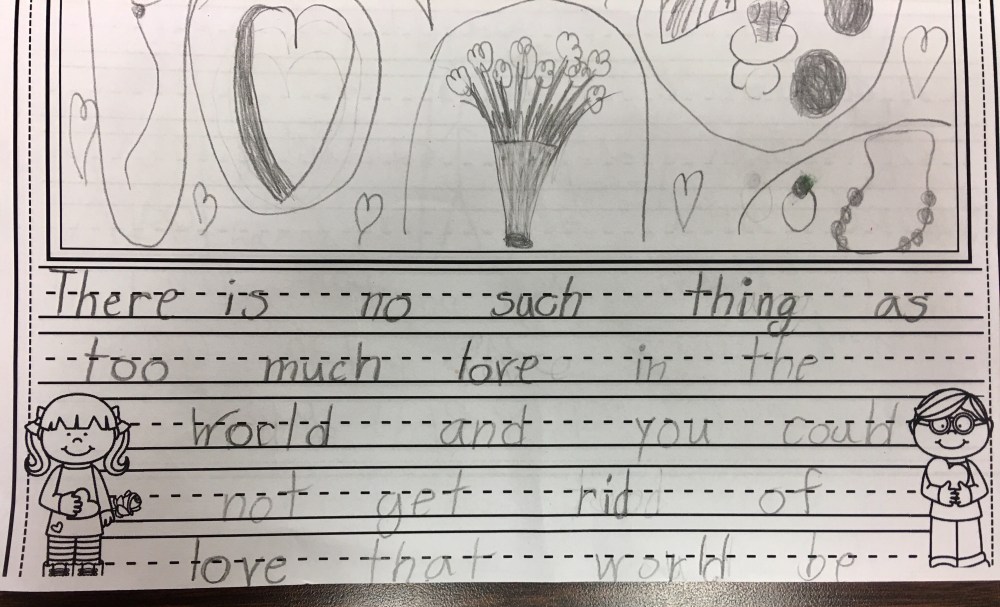 There is no such thing as
too much love in the
World and you could
not get rid of
love that world be